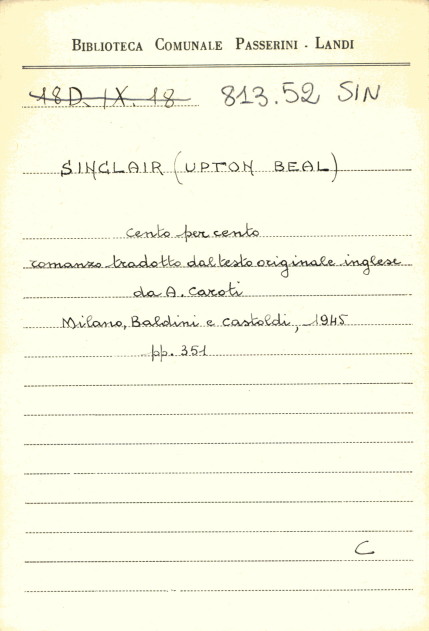 BIBLIOTECA COMUNALE PASSERINI - LANDI
18D. IX. 18 813.52 SIN
SINCLAIR (UPTON BEAL)
Cento per cento
romanzo tradotto dal testo originale inglese
da A. Caroti
Milano, Baldini e Castoldi, 1945
pp. 351
C